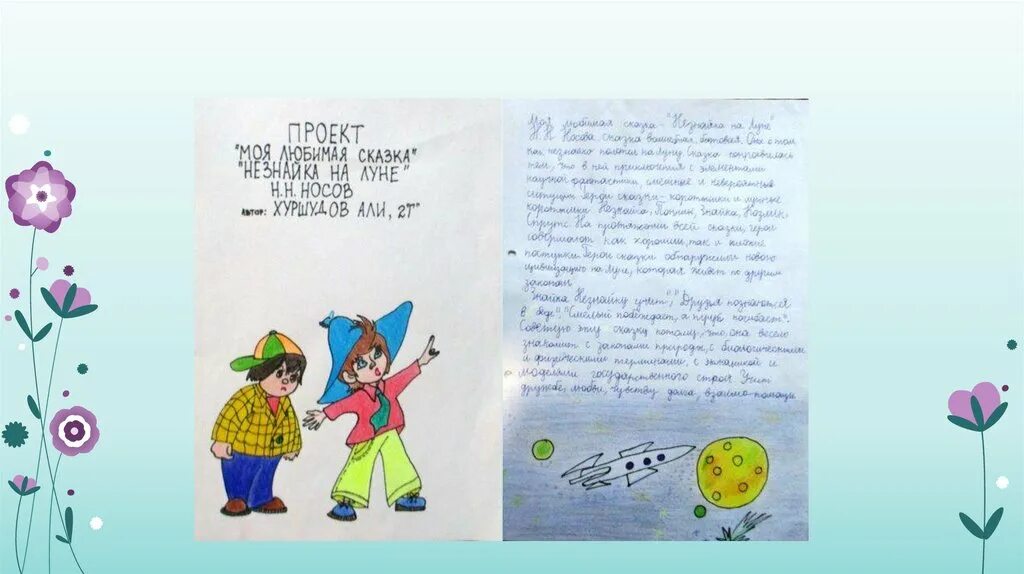 ПРОЕКТ
"МОЯ ЛЮБИМАЯ СКАЗКА"
"НЕЗНАЙКА НА ЛУНЕ"
Н.Н. НОСОВ
АВТОР: ХУРШУДОВ АЛИ, 2"Г"
Моя любимая сказка - "Незнайка на Луне"
Н.Н. Носова. Сказка волшебная, бытовая. Она о том,
как Незнайка полетел на Луну. Сказка понравилась
тем, что в ней приключения с элементами
научной фантастики, смешные и невероятные
ситуции. Герои сказки - коротышки и лунные
коротышки: Незнайка, Пончик, Знайка, Козлик,
Спрутс. На протяжении всей сказки, герои
совершают как хорошии, так и плохие
поступки. Герои сказки обнаружены нового
цивилизацию на Луне, которая живет по другим
законам.
Знайка Незнайку учит", "Друзья познаются
в беде", "Смелый побеждает, а трус погибает".
Советую эту сказку потому, что она весело
знакомит с законами природы, с биологическими
и физическими терминами, с экономикой и
моделями государственного строя. Учит
дружбе, любви, чувству долга, взаимо-помощи